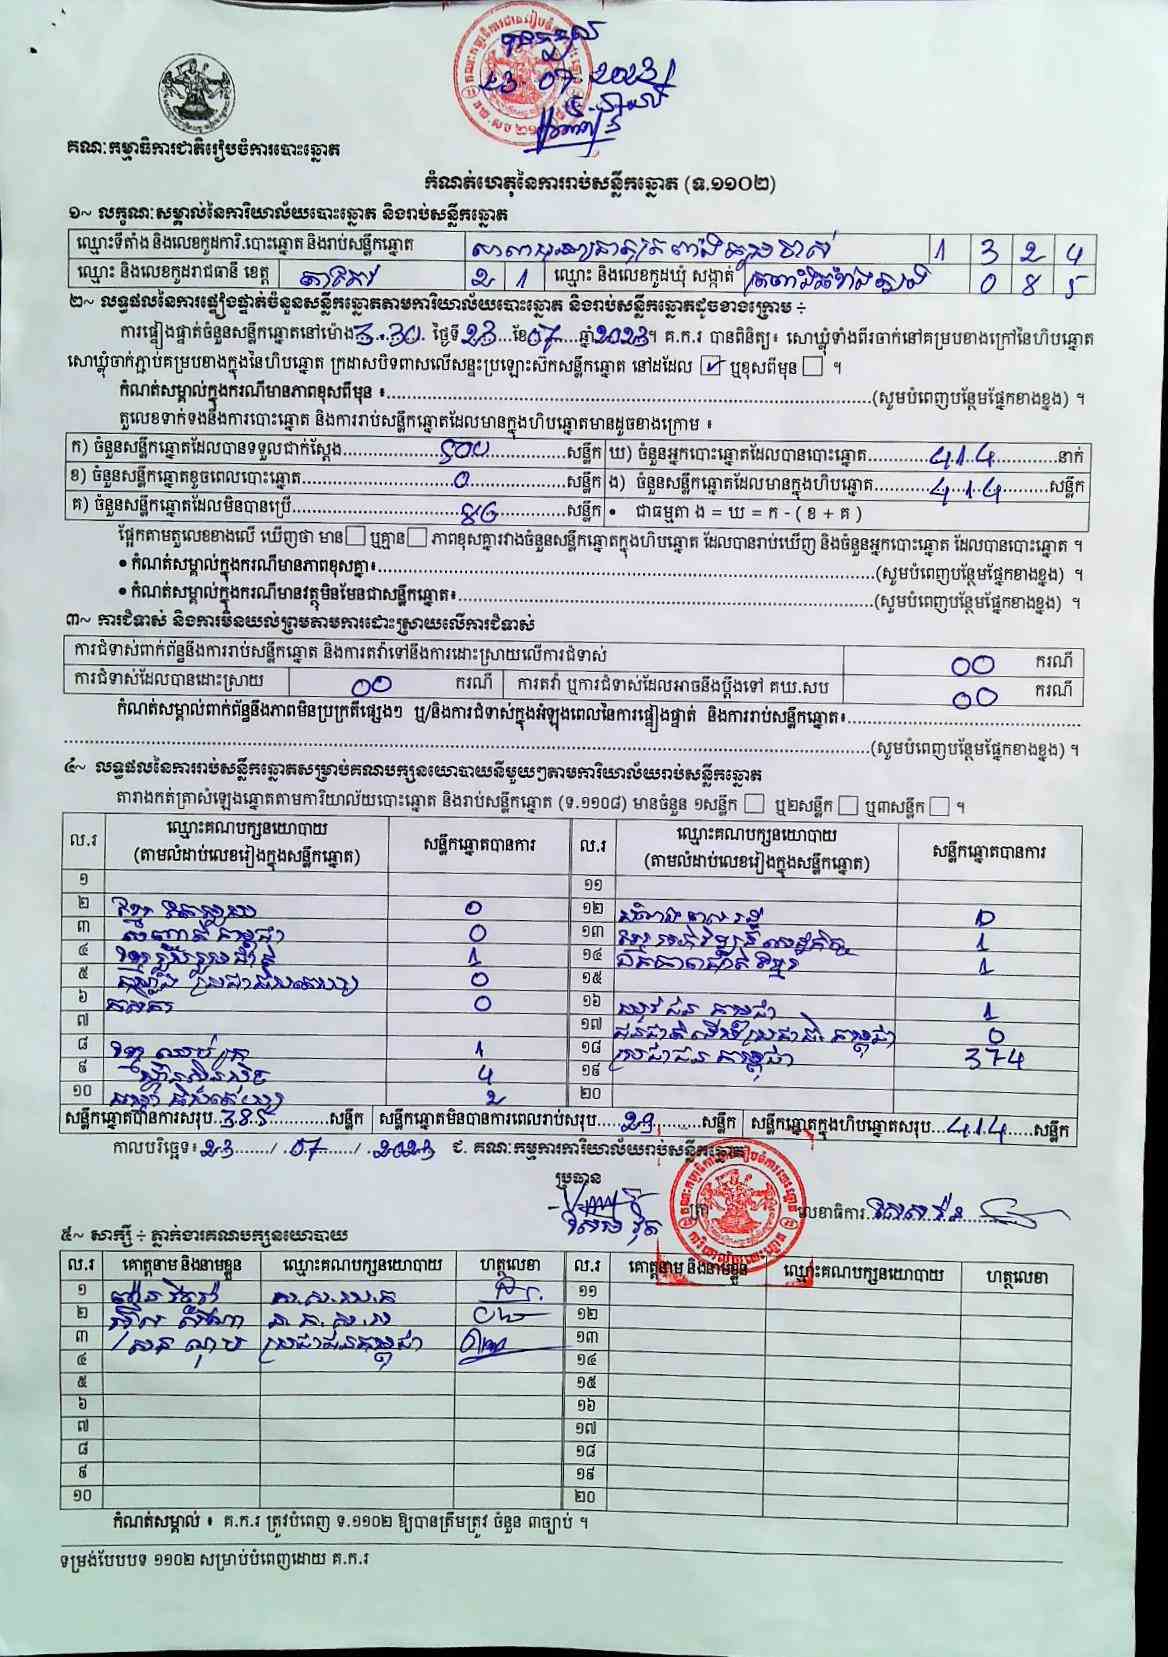 គណៈកម្មាធិការជាតិរៀបចំការបោះឆ្នោត
23.07.2023
កំណត់ហេតុនៃការរាប់សន្លឹកឆ្នោត (ទ.១១០២)
១~ លក្ខណៈសម្គាល់នៃការិយាល័យបោះឆ្នោត និងរាប់សន្លឹកឆ្នោត
ឈ្មោះទីតាំង និងលេខកូដការិ.បោះឆ្នោត និងរាប់សន្លឹកឆ្នោត 1 3 2 4
ឈ្មោះ និងលេខកូដរាជធានី ខេត្ត តាកែវ 2 1 ឈ្មោះ និងលេខកូដឃុំ សង្កាត់ 0 8 5
២~ លទ្ធផលនៃការផ្ទៀងផ្ទាត់ចំនួនសន្លឹកឆ្នោតតាមការិយាល័យបោះឆ្នោត និងរាប់សន្លឹកឆ្នោតដូចខាងក្រោម ÷
ការផ្ទៀងផ្ទាត់ចំនួនសន្លឹកឆ្នោតនៅម៉ោង 3.30 ថ្ងៃទី 23 ខែ 07 ឆ្នាំ 2023។ គ.ក.រ បានពិនិត្យ៖ សោឃ្លុំទាំងពីរចាក់នៅគម្របខាងក្រៅនៃហិបឆ្នោត
សោឃ្លុំចាក់ភ្ជាប់គម្របខាងក្នុងនៃហិបឆ្នោត ក្រដាសបិទពាសលើសន្ទះប្រឡោះស៊កសន្លឹកឆ្នោត នៅដដែល ☑ ឬខុសពីមុន ☐ ។
កំណត់សម្គាល់ក្នុងករណីមានភាពខុសពីមុន ៖ (សូមបំពេញបន្ថែមផ្នែកខាងខ្នង) ។
តួលេខទាក់ទងនឹងការបោះឆ្នោត និងការរាប់សន្លឹកឆ្នោតដែលមានក្នុងហិបឆ្នោតមានដូចខាងក្រោម ៖
ក) ចំនួនសន្លឹកឆ្នោតដែលបានទទួលជាក់ស្តែង 500 សន្លឹក ឃ) ចំនួនអ្នកបោះឆ្នោតដែលបានបោះឆ្នោត 414 នាក់
ខ) ចំនួនសន្លឹកឆ្នោតខូចពេលបោះឆ្នោត 0 សន្លឹក ង) ចំនួនសន្លឹកឆ្នោតដែលមានក្នុងហិបឆ្នោត 414 សន្លឹក
គ) ចំនួនសន្លឹកឆ្នោតដែលមិនបានប្រើ 86 សន្លឹក • ជាធម្មតា ង = ឃ = ក - ( ខ + គ )
ផ្អែកតាមតួលេខខាងលើ ឃើញថា មាន ☐ ឬគ្មាន ☐ ភាពខុសគ្នារវាងចំនួនសន្លឹកឆ្នោតក្នុងហិបឆ្នោត ដែលបានរាប់ឃើញ និងចំនួនអ្នកបោះឆ្នោត ដែលបានបោះឆ្នោត ។
• កំណត់សម្គាល់ក្នុងករណីមានភាពខុសគ្នា៖ (សូមបំពេញបន្ថែមផ្នែកខាងខ្នង) ។
• កំណត់សម្គាល់ក្នុងករណីមានវត្ថុមិនមែនជាសន្លឹកឆ្នោត៖ (សូមបំពេញបន្ថែមផ្នែកខាងខ្នង) ។
៣~ ការជំទាស់ និងការមិនយល់ព្រមតាមការដោះស្រាយលើការជំទាស់
ការជំទាស់ពាក់ព័ន្ធនឹងការរាប់សន្លឹកឆ្នោត និងការតវ៉ាទៅនឹងការដោះស្រាយលើការជំទាស់ 00 ករណី
ការជំទាស់ដែលបានដោះស្រាយ 00 ករណី ការតវ៉ា ឬការជំទាស់ដែលអាចនឹងប្តឹងទៅ គឃ.សប 00 ករណី
កំណត់សម្គាល់ពាក់ព័ន្ធនឹងភាពមិនប្រក្រតីផ្សេងៗ ឬ/និងការជំទាស់ក្នុងអំឡុងពេលនៃការផ្ទៀងផ្ទាត់ និងការរាប់សន្លឹកឆ្នោត៖
(សូមបំពេញបន្ថែមផ្នែកខាងខ្នង) ។
៤~ លទ្ធផលនៃការរាប់សន្លឹកឆ្នោតសម្រាប់គណបក្សនយោបាយនីមួយៗតាមការិយាល័យរាប់សន្លឹកឆ្នោត
តារាងកត់ត្រាសំឡេងឆ្នោតតាមការិយាល័យបោះឆ្នោត និងរាប់សន្លឹកឆ្នោត (ទ.១១០៨) មានចំនួន ១សន្លឹក ☐ ឬ២សន្លឹក ☐ ឬ៣សន្លឹក ☐ ។
ល.រ ឈ្មោះគណបក្សនយោបាយ (តាមលំដាប់លេខរៀងក្នុងសន្លឹកឆ្នោត) សន្លឹកឆ្នោតបានការ ល.រ ឈ្មោះគណបក្សនយោបាយ (តាមលំដាប់លេខរៀងក្នុងសន្លឹកឆ្នោត) សន្លឹកឆ្នោតបានការ
១ ១១
២ 0 ១២ 0
៣ 0 ១៣ 1
៤ 1 ១៤ 1
៥ 0 ១៥
៦ 0 ១៦ 1
៧ ១៧ 0
៨ 1 ១៨ ប្រជាជន កម្ពុជា 374
៩ 4 ១៩
១០ 2 ២០
សន្លឹកឆ្នោតបានការសរុប 385 សន្លឹក សន្លឹកឆ្នោតមិនបានការពេលរាប់សរុប 29 សន្លឹក សន្លឹកឆ្នោតក្នុងហិបឆ្នោតសរុប 414 សន្លឹក
កាលបរិច្ឆេទ៖ 23 / 07 / 2023 ជ. គណៈកម្មការការិយាល័យរាប់សន្លឹកឆ្នោត
ប្រធាន
លេខាធិការ
៥~ សាក្សី ÷ ភ្នាក់ងារគណបក្សនយោបាយ
ល.រ គោត្តនាម និងនាមខ្លួន ឈ្មោះគណបក្សនយោបាយ ហត្ថលេខា ល.រ គោត្តនាម និងនាមខ្លួន ឈ្មោះគណបក្សនយោបាយ ហត្ថលេខា
១ ១១
២ ១២
៣ ប្រជាជនកម្ពុជា ១៣
៤ ១៤
៥ ១៥
៦ ១៦
៧ ១៧
៨ ១៨
៩ ១៩
១០ ២០
កំណត់សម្គាល់ ៖ គ.ក.រ ត្រូវបំពេញ ទ.១១០២ ឱ្យបានត្រឹមត្រូវ ចំនួន ៣ច្បាប់ ។
ទម្រង់បែបបទ ១១០២ សម្រាប់បំពេញដោយ គ.ក.រ